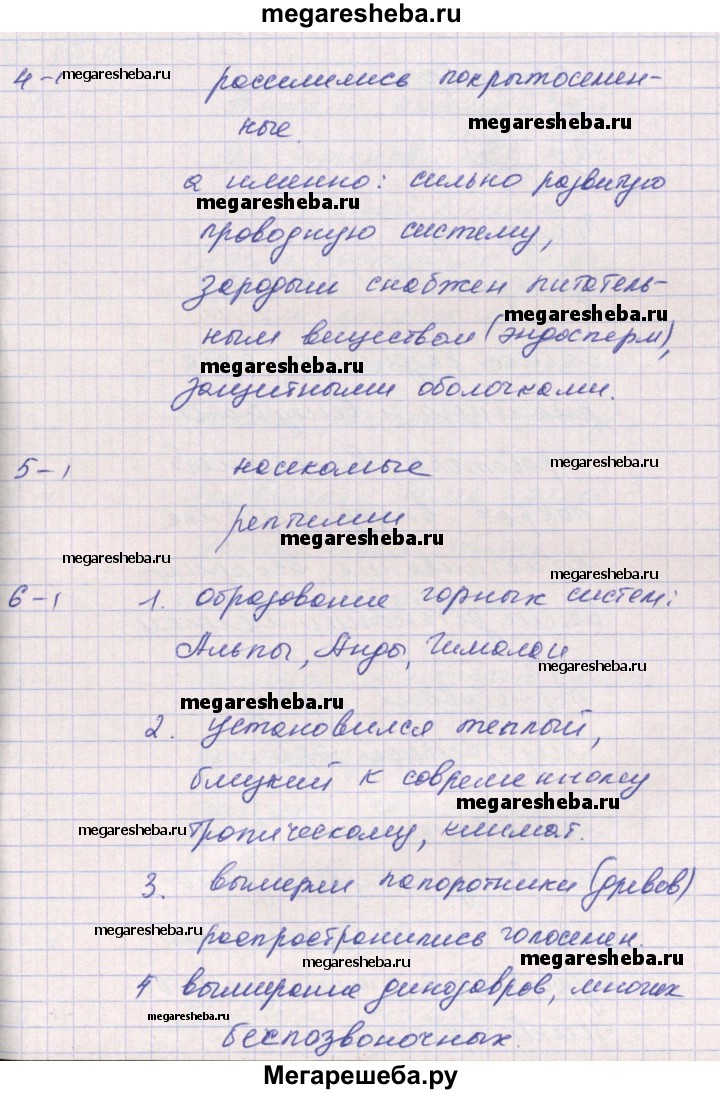 megaresheba.ru
4-1 megaresheba.ru расселились покрытосемен-
ные. megaresheba.ru
а именно: сильно развитую
megaresheba.ru
проводную систему,
зародыш снабжен питатель-
megaresheba.ru
ным веществом (эндосперм),
megaresheba.ru
защитными оболочками.
5-1 насекомые megaresheba.ru
рептилии
megaresheba.ru
megaresheba.ru
megaresheba.ru
6-1 1. Образование горных систем:
Альпы, Анды, Гималаи
megaresheba.ru
megaresheba.ru
2. Установился теплый,
близкий к современному
megaresheba.ru
megaresheba.ru тропическому, климат.
3. вымерли папоротники (древов)
megaresheba.ru
распространились голосемен.
megaresheba.ru megaresheba.ru
4 вымирание динозавров, многих
megaresheba.ru
беспозвоночных.
Мегарешеба.ру